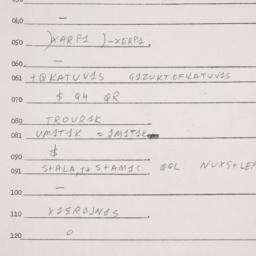 040 —
050 )XARP1 )-XERP1.
060 —
061 +QKATUV1S G1ZUKTOFKATUV1S
070 $ G4 QR
080 TROUR1K
081 UM1T1K = 1M1T1K
090 $
091 S+ALA, S+AM1S GGL NUXS+LEP
100 —
110 Y1SROJN1S
120 0